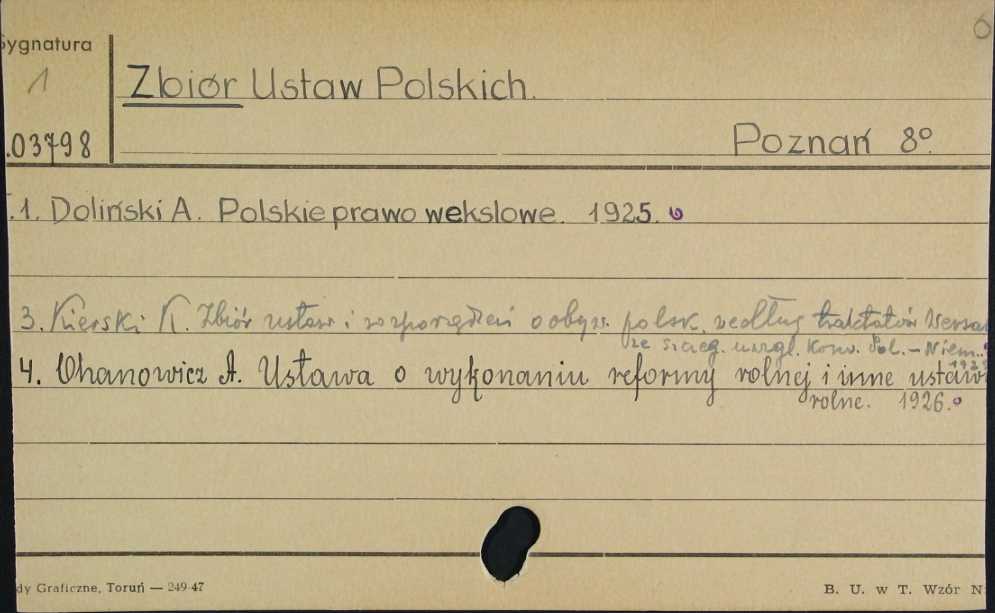 Sygnatura
1
.03798
Zbiór Ustaw Polskich.
Poznań 8º.
.1. Doliński A. Polskie prawo wekslowe. 1925.
3. Kierski K. Zbiór ustaw i rozporządzeń o obyw. polsk. według traktatów Wersa
ze szczeg. uwzgl. konw. Pol.-Niem.
4. Ohanowicz A. Ustawa o wykonaniu reformy rolnej i inne ustawy
rolne. 1926.
dy Graficzne, Toruń — 249-47
B. U. w T. Wzór N